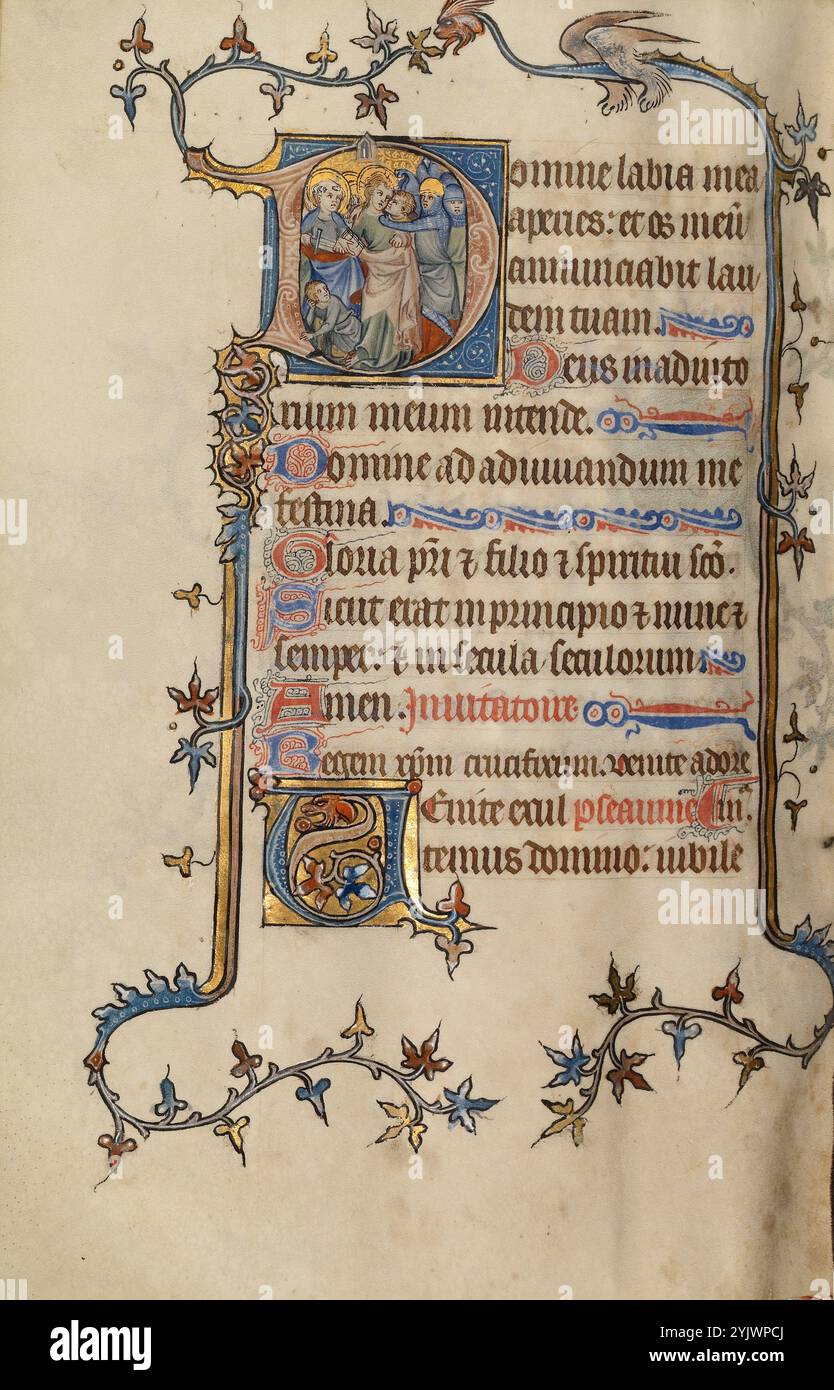 Domine labia mea
aperies: et os meū
annunciabit lau
dem tuam.
Deus in adiuto
rium meum intende.
Domine ad adiuuandum me
festina.
Gloria pr̄i ⁊ filio ⁊ spiritui sc̄o.
Sicut erat in principio ⁊ nunc ⁊
semper: ⁊ in secula seculorum
Amen. Inuitatoire
Regem xp̄m crucifixum. uenite adore
Venite exul pseaume
temus domino: iubile
alamy
Image ID: 2YJWPCJ
www.alamy.com